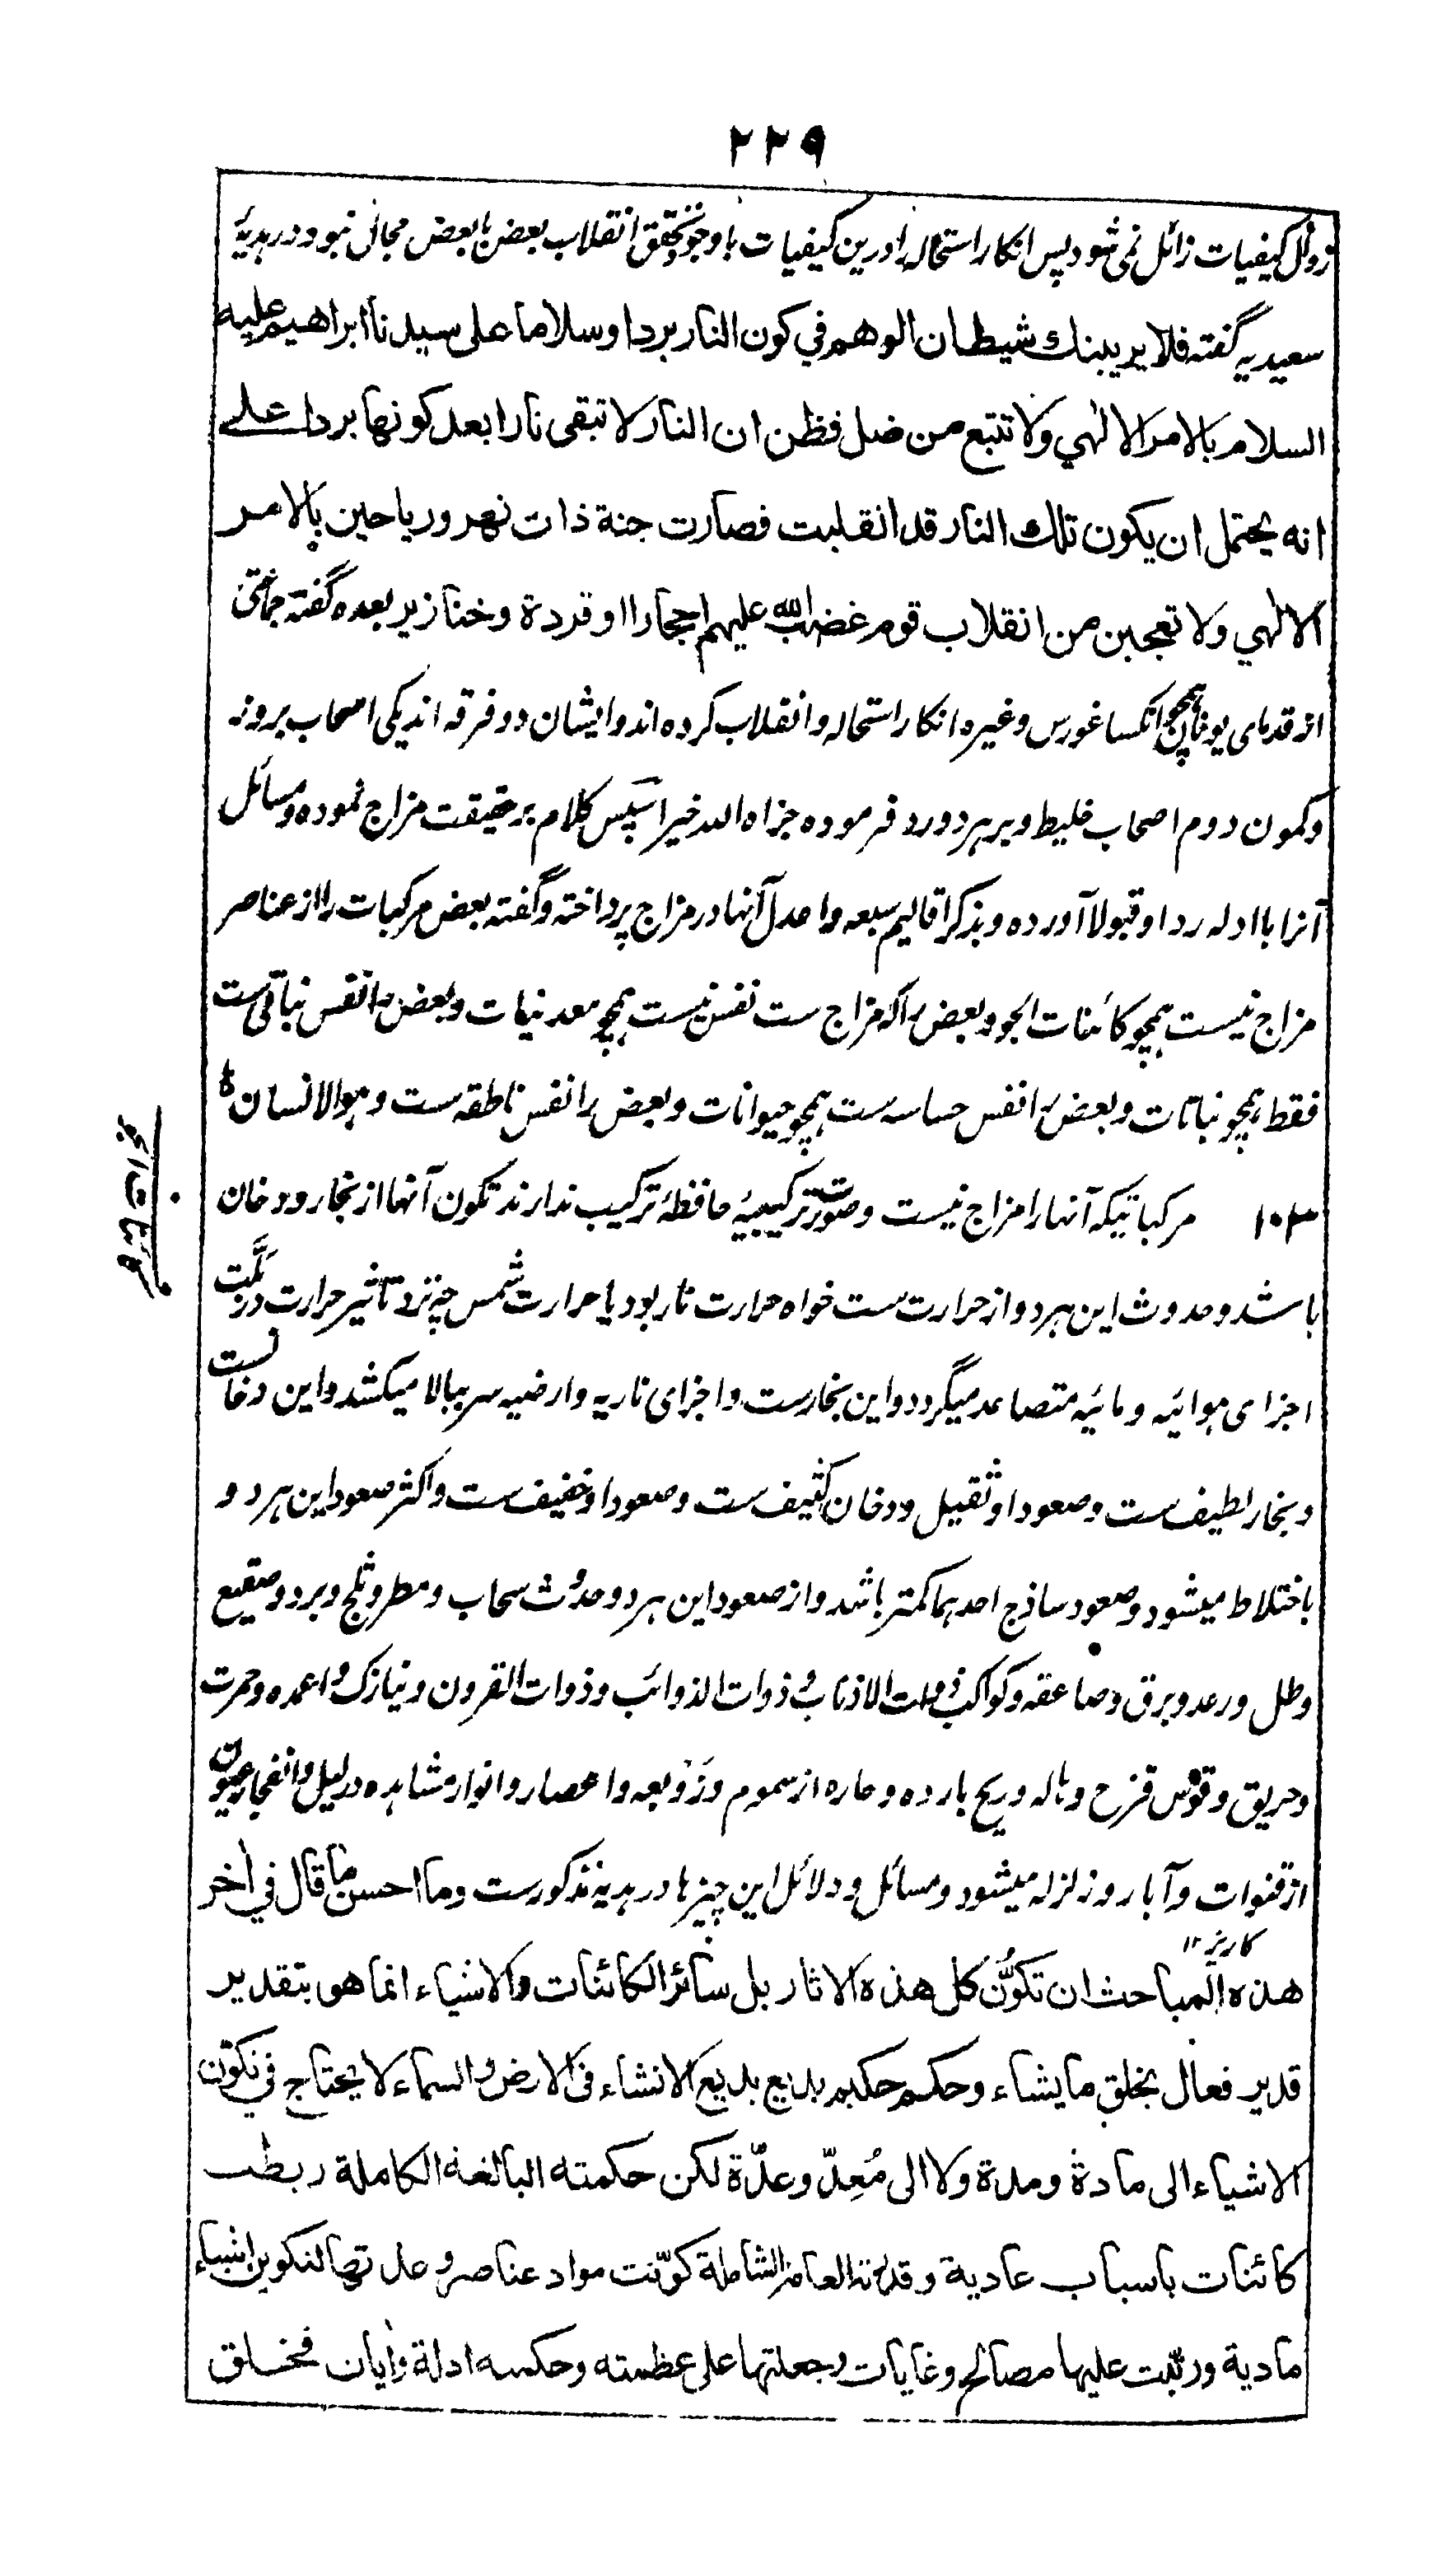 ۲۲۹
زوال کیفیات زائل نمی شود پس انکار استحاله را درین کیفیات با وجود تحقق انقلاب بعض با بعض مجال نبود در هدیهٔ
سعیدیه گفته فلا یریبنك شیطان الوهم في كون النار بردا وسلاما على سیدنا ابراهیم علیه
السلام بالامر الالٰهي ولا تتبع من ضل فظن ان النار لا تبقى نارا بعد كونها بردا علے
انه يحتمل ان يكون تلك النار قد انقلبت فصارت جنة ذات نهر ورياحين بالامر
الالٰهي ولا تعجبن من انقلاب قوم غضب الله عليهم احجارا او قردة وخنازير بعده گفته جماعتی
از قدمای یونان همچو انکساغورس وغیره انکار استحاله و انقلاب کرده اند و ایشان دو فرقه اند یکی اصحاب بروز
وکمون دوم اصحاب خلیط و بر هر دو رد فرموده جزاه الله خیرا سپس کلام بر حقیقت مزاج نموده و مسائل
آنرا با ادله ردا و قبولا آورده و بذکر اقالیم سبعه و اعدل آنها در مزاج پرداخته و گفته بعض مرکبات را از عناصر
مزاج نیست همچو کائنات الجو و بعض را که مزاج ست نفس نیست همچو معدنیات و بعض را نفس نباتی ست
فقط همچو نباتات و بعض را نفس حساسه ست همچو حیوانات و بعض را نفس ناطقه ست و هو الانسان
کائنات الجو
۱۰۳ مرکباتیکه آنها را مزاج نیست و صورت ترکیبیهٔ حافظهٔ ترکیب ندارند تکون آنها از بخار و دخان
باشد و حدوث این هر دو از حرارت ست خواه حرارت نار بود یا حرارت شمس چه نزد تاثیر حرارت در
اجزای هوائیه و مائیه متصاعد میگردد و این بخارست و اجزای ناریه و ارضیه سر ببالا میکشد و این دخانست
و بخار لطیف ست و صعود او ثقیل و دخان کثیف ست و صعود او خفیف ست و اکثر صعود این هر دو
باختلاط میشود و صعود ساذج احدهما کمتر باشد و از صعود این هر دو حدوث سحاب و مطر و ثلج و برد و صقیع
وطل و رعد و برق و صاعقه و کواکب ذوات الاذناب و ذوات الذوائب و ذوات القرون و نیازک و اعمده و حمرت
وحریق و قوس قزح و هاله و ریح بارده و حاره از سموم و زوبعه و اعصار و انوار مشاهده در لیل و انفجار عیون
از قنوات و آبار و زلزله میشود و مسائل و دلائل این چیزها در هدیه مذکورست وما احسن ما قال في آخر
کاریز ۱۲
هذه المباحث ان تكوُّن كل هذه الاثار بل سائر الكائنات والاشياء انما هو بتقدير
قدير فعال يخلق ما يشاء وحكم حكيم بديع بديع الانشاء في الارض والسماء لا يحتاج في تكوّن
الاشياء الى مادة ومدة ولا الى مُعِدّ وعدّة لكن حكمته البالغة الكاملة ربطت
كائنات باسباب عادية وقدرته العامة الشاملة كوّنت مواد عناصر وعدتها لتكوين اشياء
مادية ورتّبت عليها مصالح وغايات وجعلتها على عظمته وحكمته ادلة وآيات فخلق